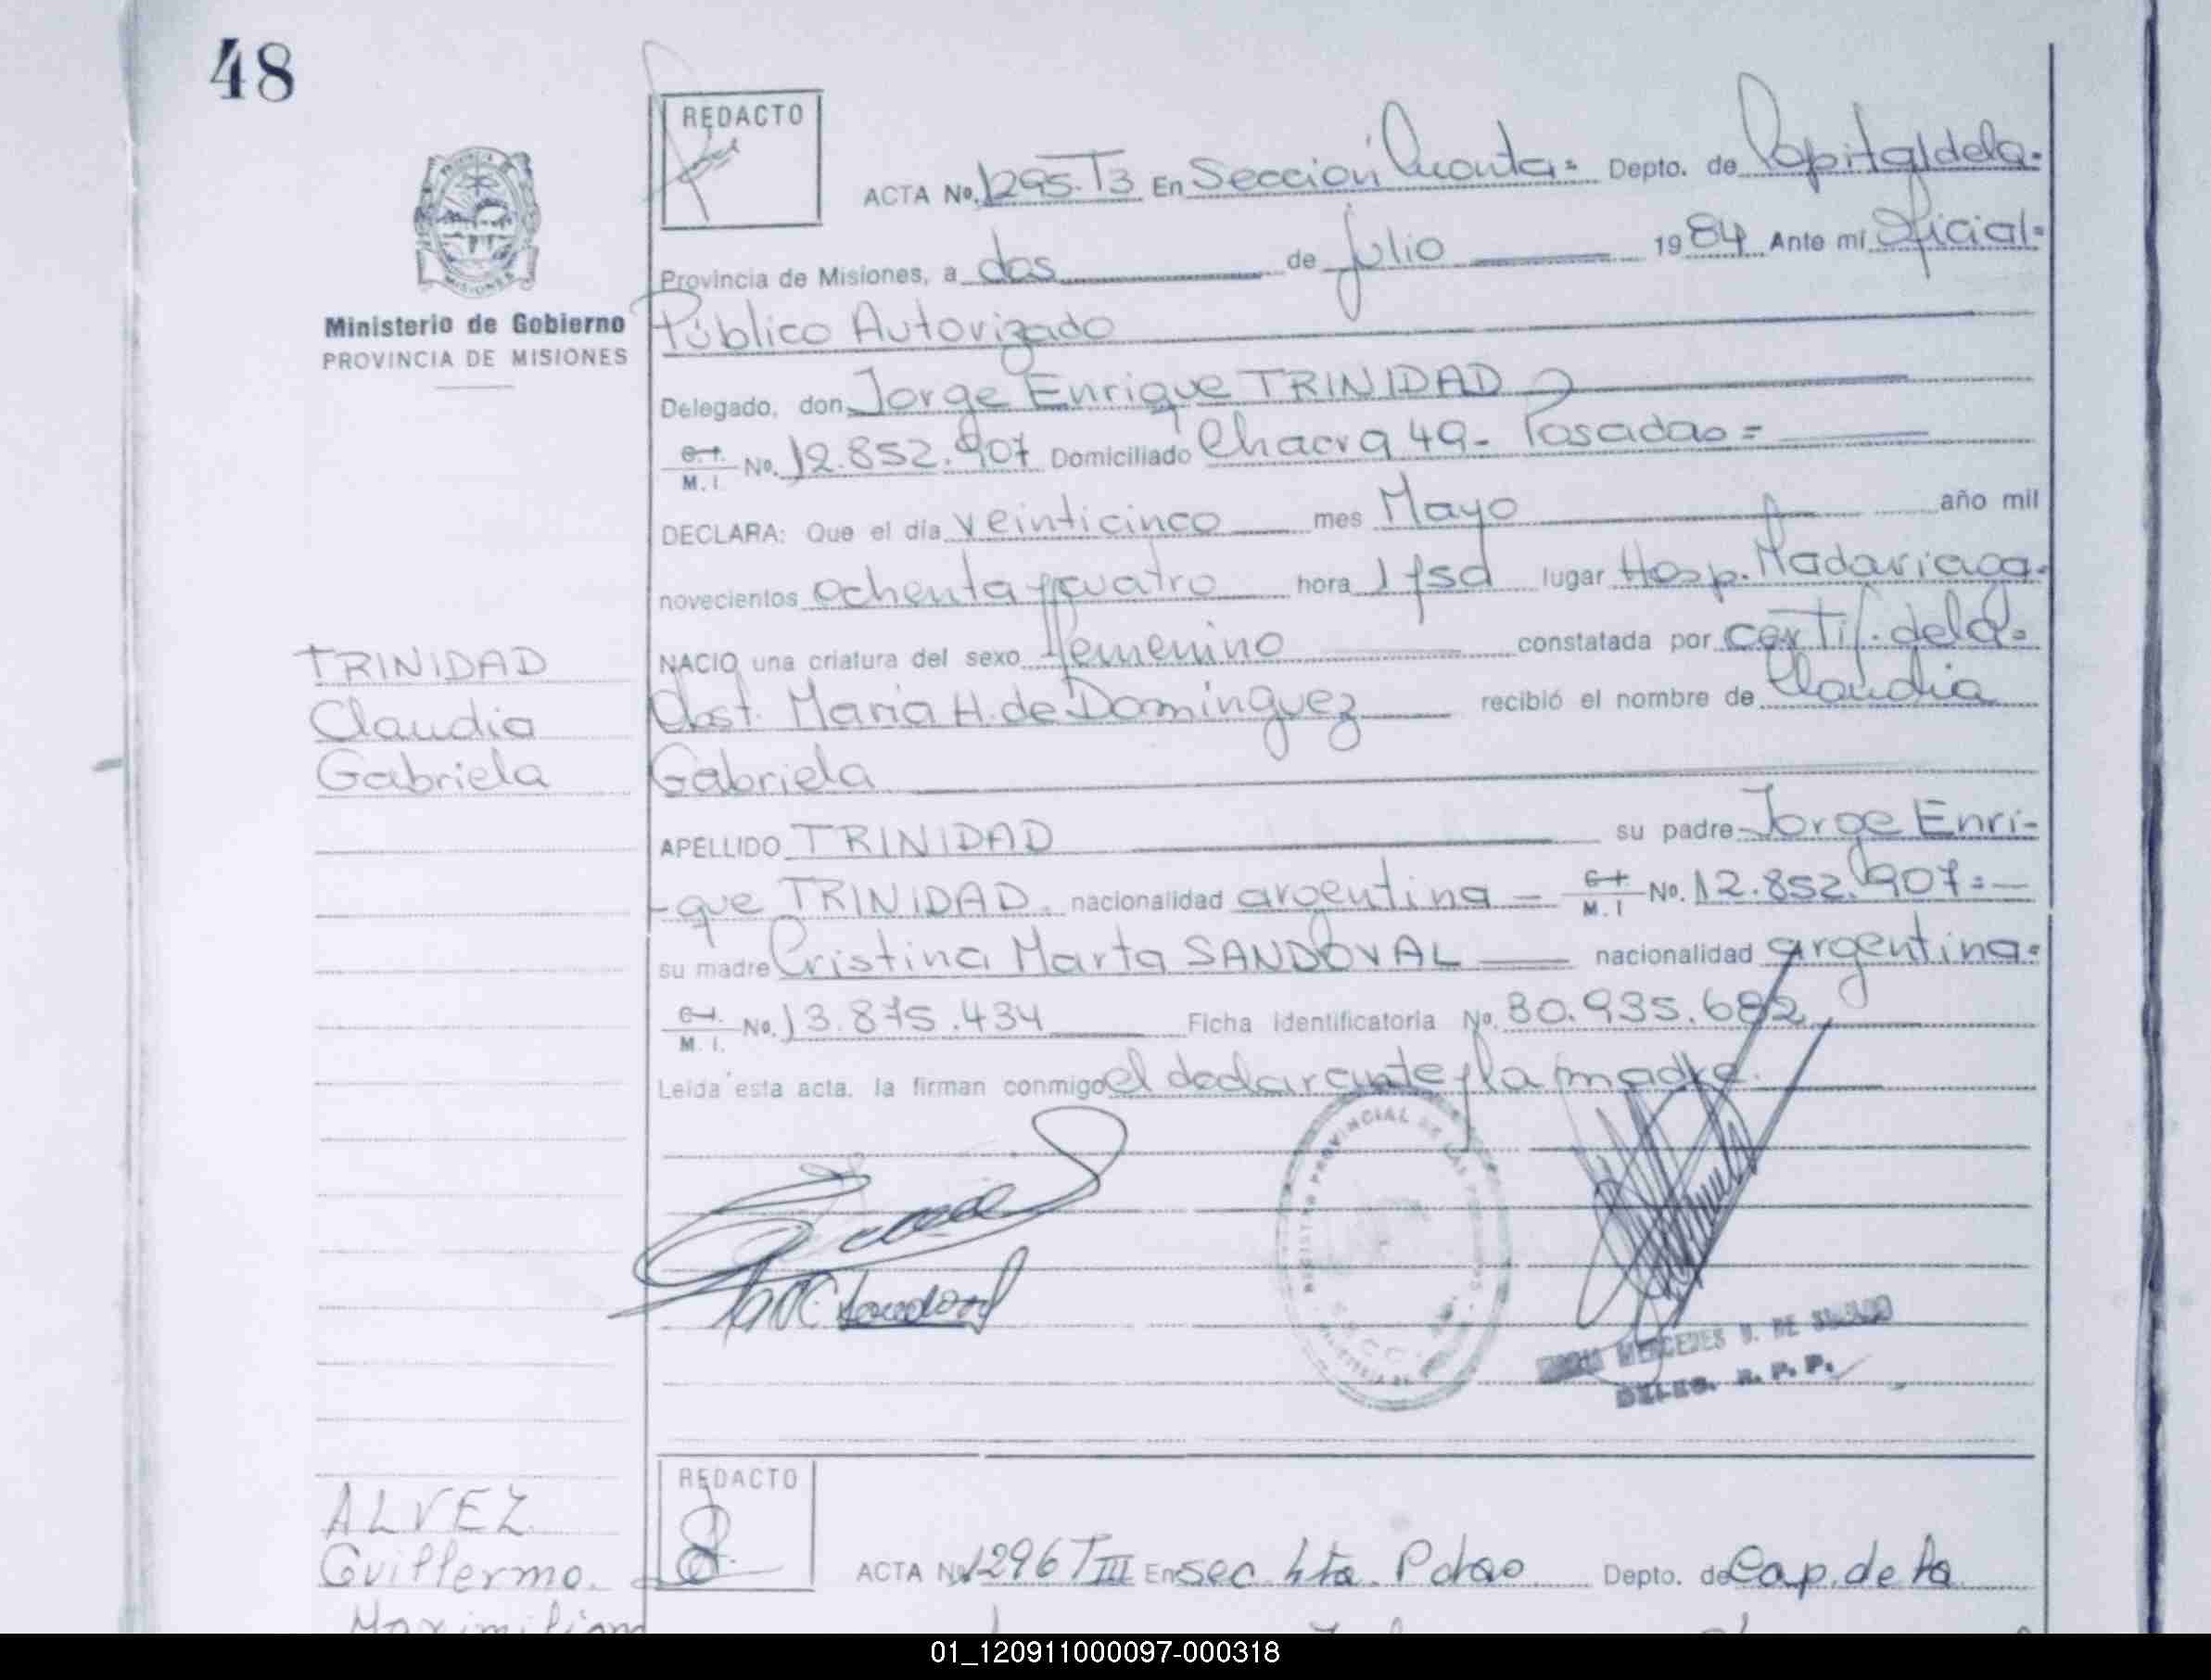 48
REDACTO
ACTA No. 1295. T3 En Sección Cuarta= Depto. de Capital de la=
Provincia de Misiones, a dos de julio 1984 Ante mí Oficial=
Ministerio de Gobierno
PROVINCIA DE MISIONES
Público Autorizado
Delegado, don Jorge Enrique TRINIDAD
C.I. M.I. No. 12.852.907 Domiciliado Chacra 49- Posadas=
DECLARA: Que el día veinticinco mes Mayo año mil
novecientos ochenta y cuatro hora lugar Hosp. Madariaga=
NACIO una criatura del sexo femenino constatada por certif. de la=
Obst. María H. de Domínguez recibió el nombre de Claudia
Gabriela
TRINIDAD
Claudia
Gabriela
APELLIDO TRINIDAD su padre Jorge Enri-
-que TRINIDAD. nacionalidad argentina - C.I. M.I No. 12.852.907=
su madre Cristina Marta SANDOVAL nacionalidad argentina=
C.I. M.I. No. 13.875.434 Ficha identificatoria No. 80.935.682
Leída esta acta, la firman conmigo el declarante y la madre.
REGISTRO PROVINCIAL DE LAS PERSONAS
MERCEDES DE
DELEG. R. P. P.
REDACTO
ALVEZ
Guillermo.
Maximiliano
ACTA No 1296 TIII En sec 4ta. Pdas Depto. de Cap. de la
01_120911000097-000318